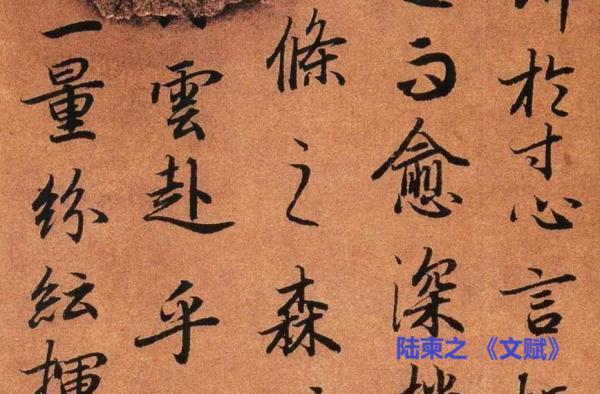 於寸心言
而愈深
條之森
雲赴乎
一量紛紜揮
陆柬之 《文赋》